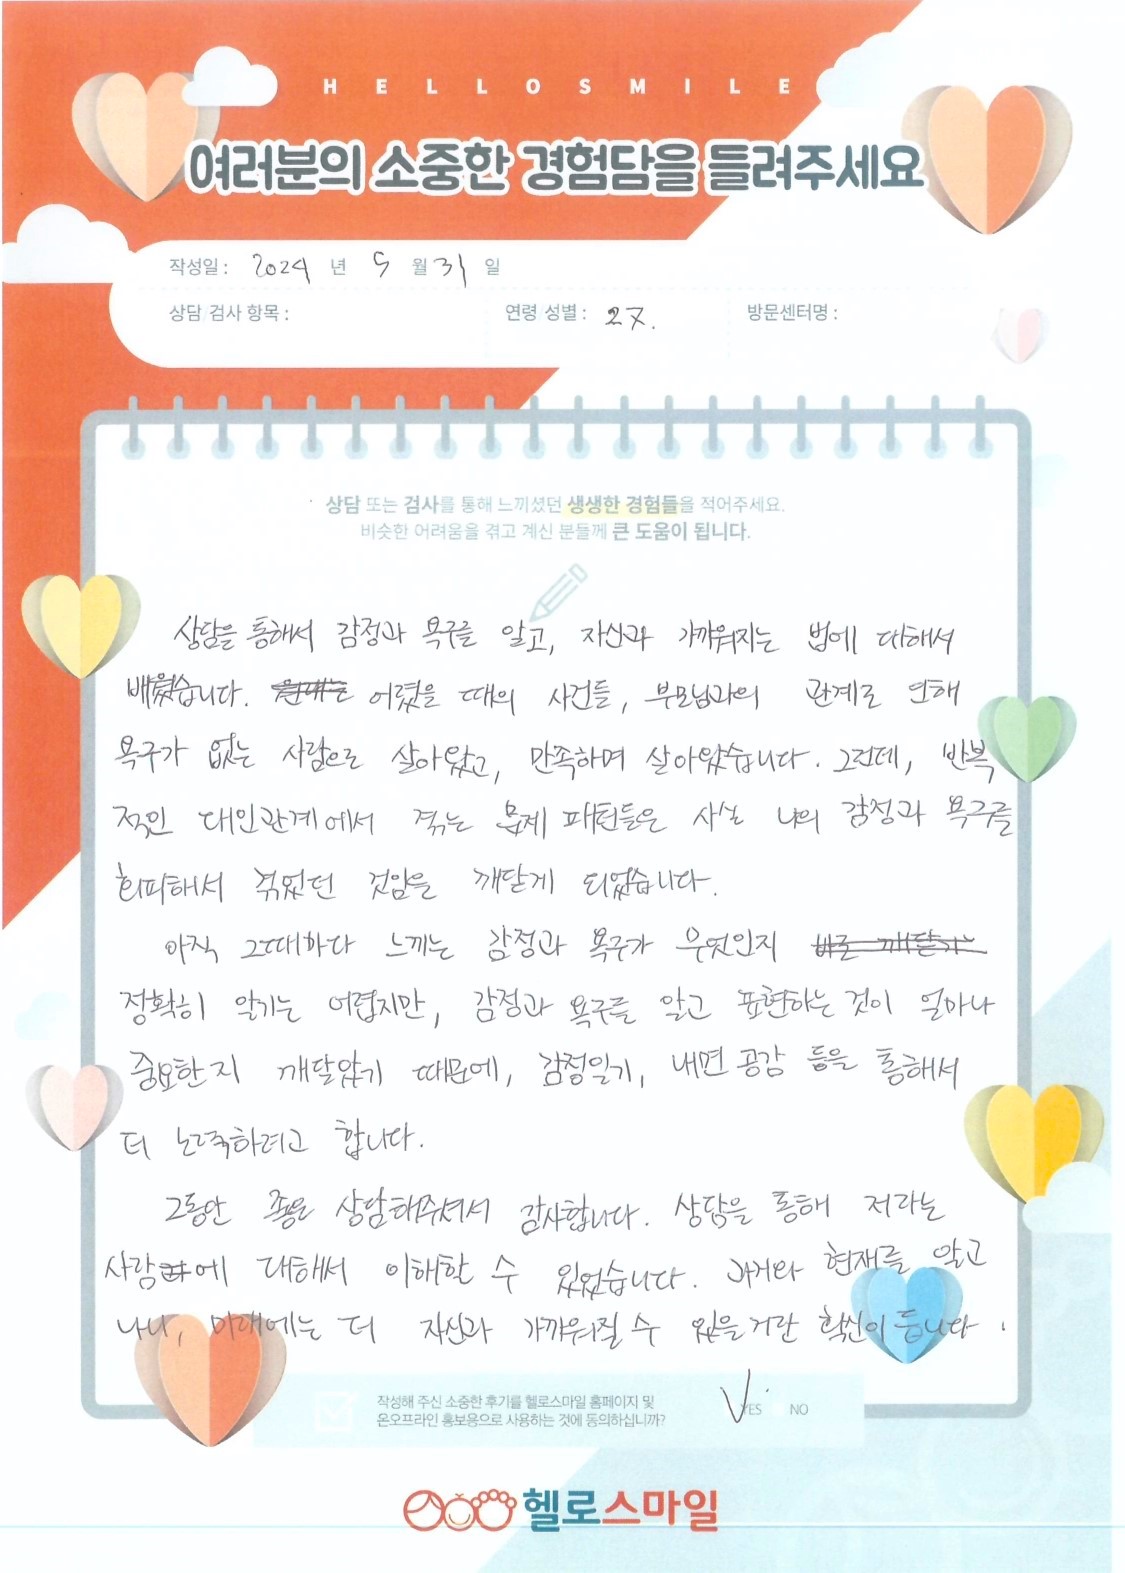 HELLOSMILE
여러분의 소중한 경험담을 들려주세요
작성일 : 2024 년 5 월 31 일
상담 검사 항목 : 연령 성별 : 27. 방문센터명 :
상담 또는 검사를 통해 느끼셨던 생생한 경험들을 적어주세요.
비슷한 어려움을 겪고 계신 분들께 큰 도움이 됩니다.
상담을 통해서 감정과 욕구를 알고, 자신과 가까워지는 법에 대해서
배웠습니다. 어렸을 때의 사건들, 부모님과의 관계로 인해
욕구가 없는 사람으로 살아왔고, 만족하며 살아왔습니다. 그런데, 반복
적인 대인관계에서 겪는 문제 패턴들은 사실 나의 감정과 욕구를
회피해서 겪었던 것임을 깨닫게 되었습니다.
아직 그때마다 느끼는 감정과 욕구가 무엇인지
정확히 알기는 어렵지만, 감정과 욕구를 알고 표현하는 것이 얼마나
중요한지 깨달았기 때문에, 감정일기, 내면 공감 등을 통해서
더 노력하려고 합니다.
그동안 좋은 상담해주셔서 감사합니다. 상담을 통해 저라는
사람에 대해서 이해할 수 있었습니다. 과거와 현재를 알고
나니, 미래에는 더 자신과 가까워질 수 있을거란 확신이 듭니다.
작성해 주신 소중한 후기를 헬로스마일 홈페이지 및
온오프라인 홍보용으로 사용하는 것에 동의하십니까? YES NO
헬로스마일